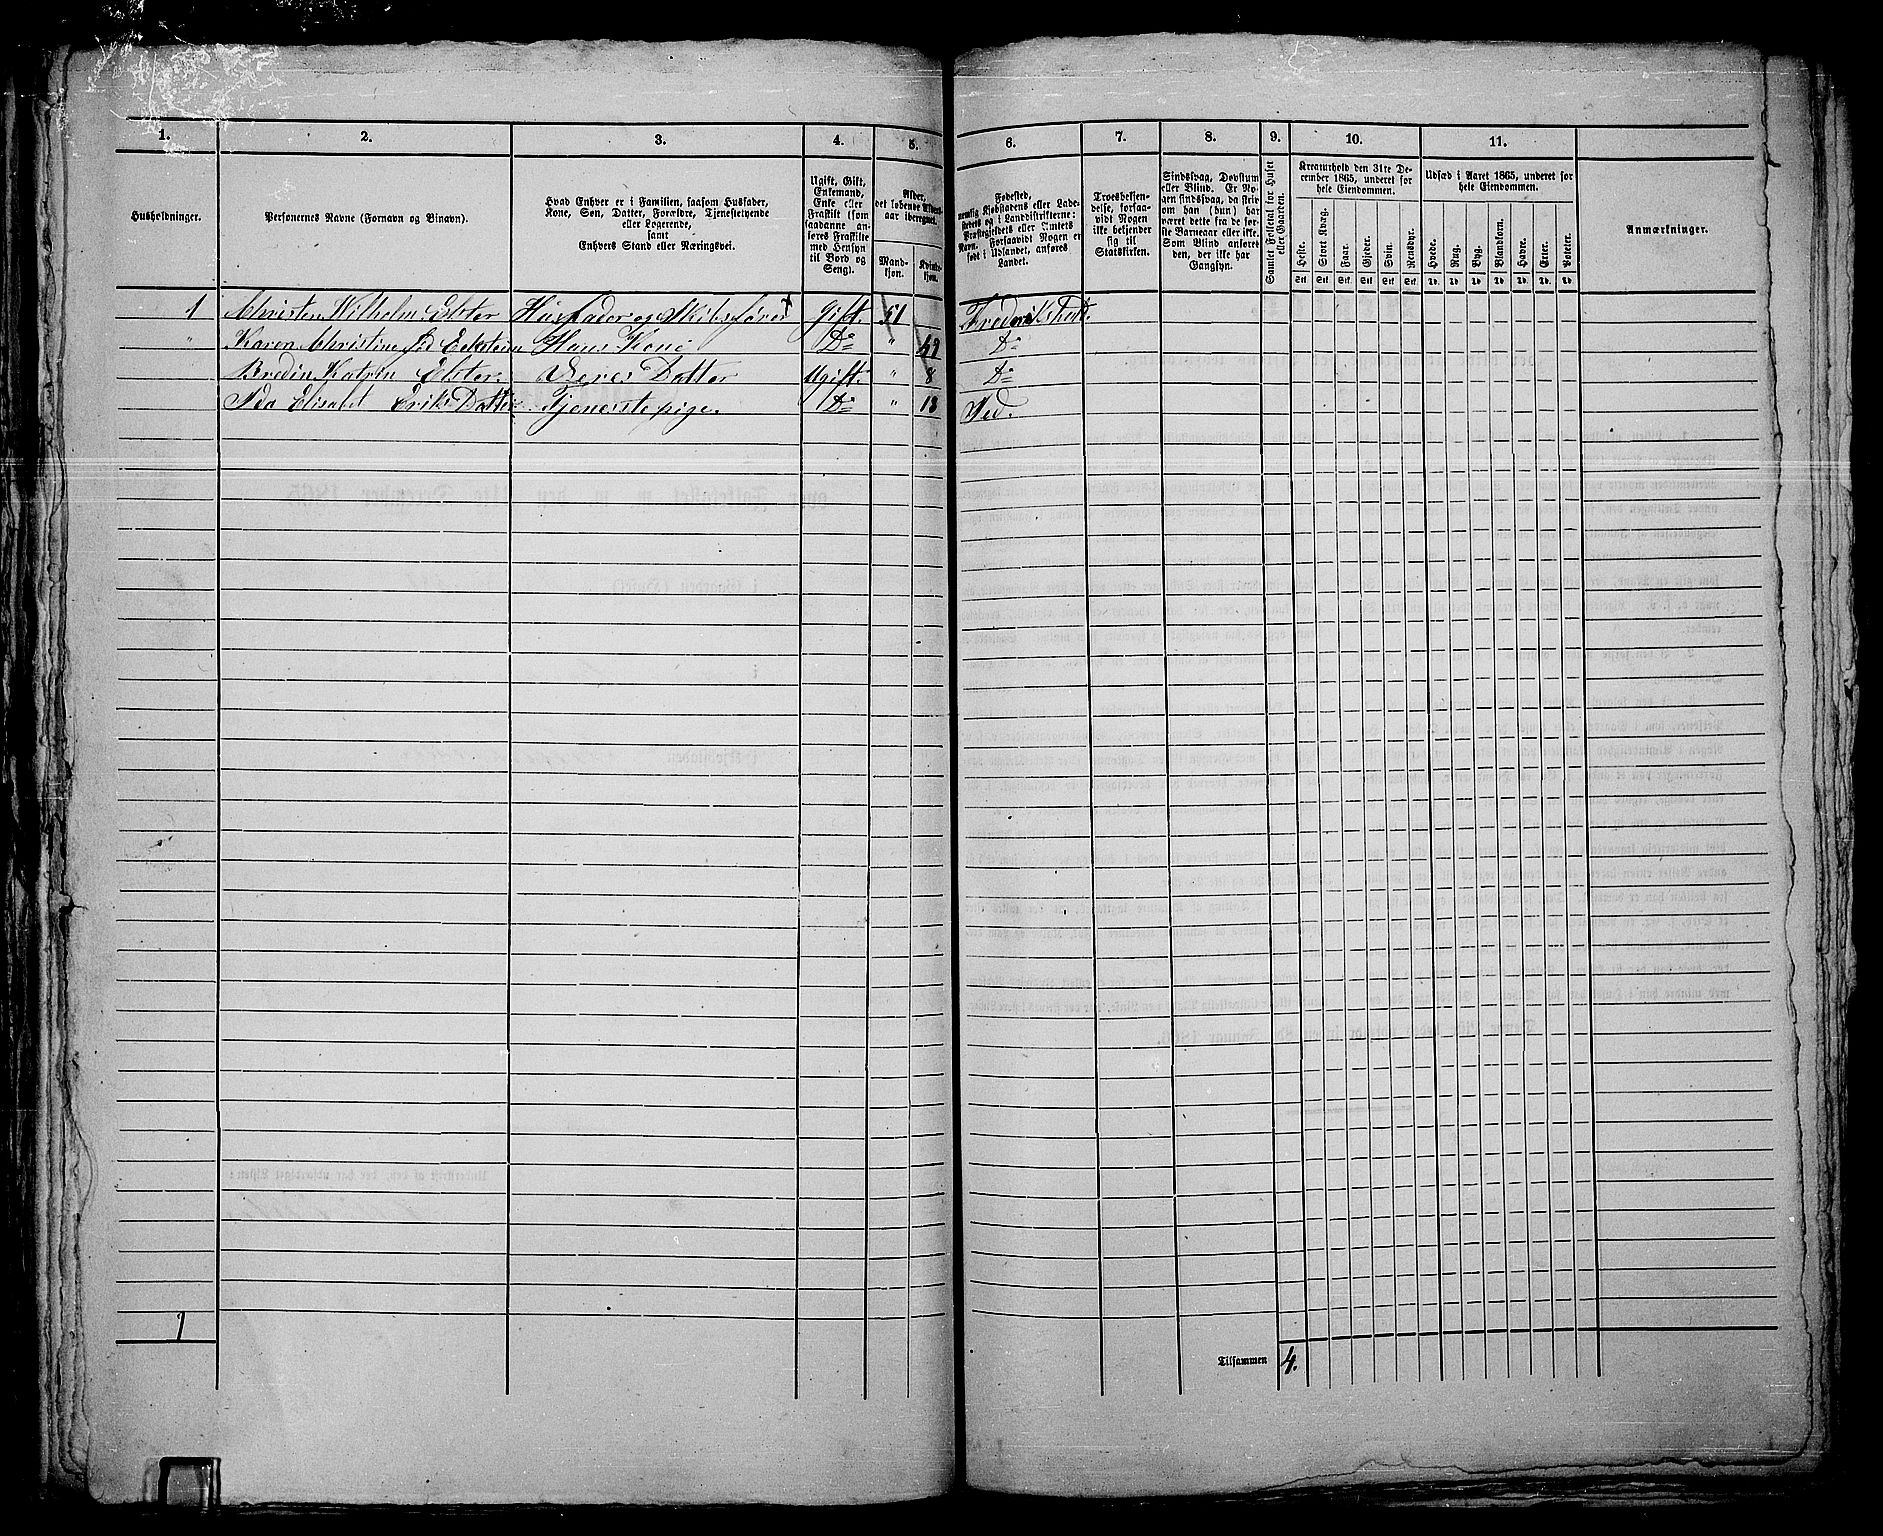 1.
2.
3.
4.
5.
6.
7.
8.
9.
10.
11.
Husholdninger.
Personernes Navne (Fornavn og Binavn).
Hvad Enhver er i Familien, saasom Husfader,
Kone, Søn, Datter, Forældre, Tjenestetyende
eller Logerende,
samt
Enhvers Stand eller Næringsvei.
Ugift, Gift,
Enkemand,
Enke eller
Fraskilt (som
saadanne an-
føres Fraskilte
med Hensyn
til Bord og
Seng).
Alder,
det løbende Alders-
aar iberegnet.
Mand-
kjøn.
Kvinde-
kjøn.
Fødested,
nemlig Kjøbstadens eller Lade-
stedets og i Landdistrikterne:
Præstegjeldets eller Amtets
Navn. Forsaavidt Nogen er
født i Udlandet, anføres
Landet.
Troesbekjen-
delse, forsaa-
vidt Nogen
ikke bekjender
sig til
Statskirken.
Sindssvag, Døvstum
eller Blind. Er No-
gen sindssvag, da skriv
om han (hun) har
været dette fra de før-
ste Barneaar eller ikke.
Som Blind anføres
den, der ikke har
Gangsyn.
Samlet Folketal for Huset
eller Gaarden.
Kreaturhold den 31te De-
cember 1865, underet for
hele Eiendommen.
Heste.
Stort Kvæg.
Faar.
Gjeder.
Svin.
Rensdyr.
Stk. Stk. Stk. Stk. Stk. Stk.
Udsæd i Aaret 1865, underet for
hele Eiendommen.
Hvede.
Rug.
Byg.
Blandkorn.
Havre.
Erter.
Poteter.
Td. Td. Td. Td. Td. Td. Td.
Anmærkninger.
1 Christen Wilhelm Elster Husfader og Skibsfører Gift. 51 Frederikstad.
" Karen Christine fød Eckstein Hans Kone Do " 49 Do
Bredin Katrin Elster. Deres Datter Ugift. " 8 Do
Ida Elisabet Eriks Datter Tjenerstepige. Do " 18
1
Tilsammen 4.